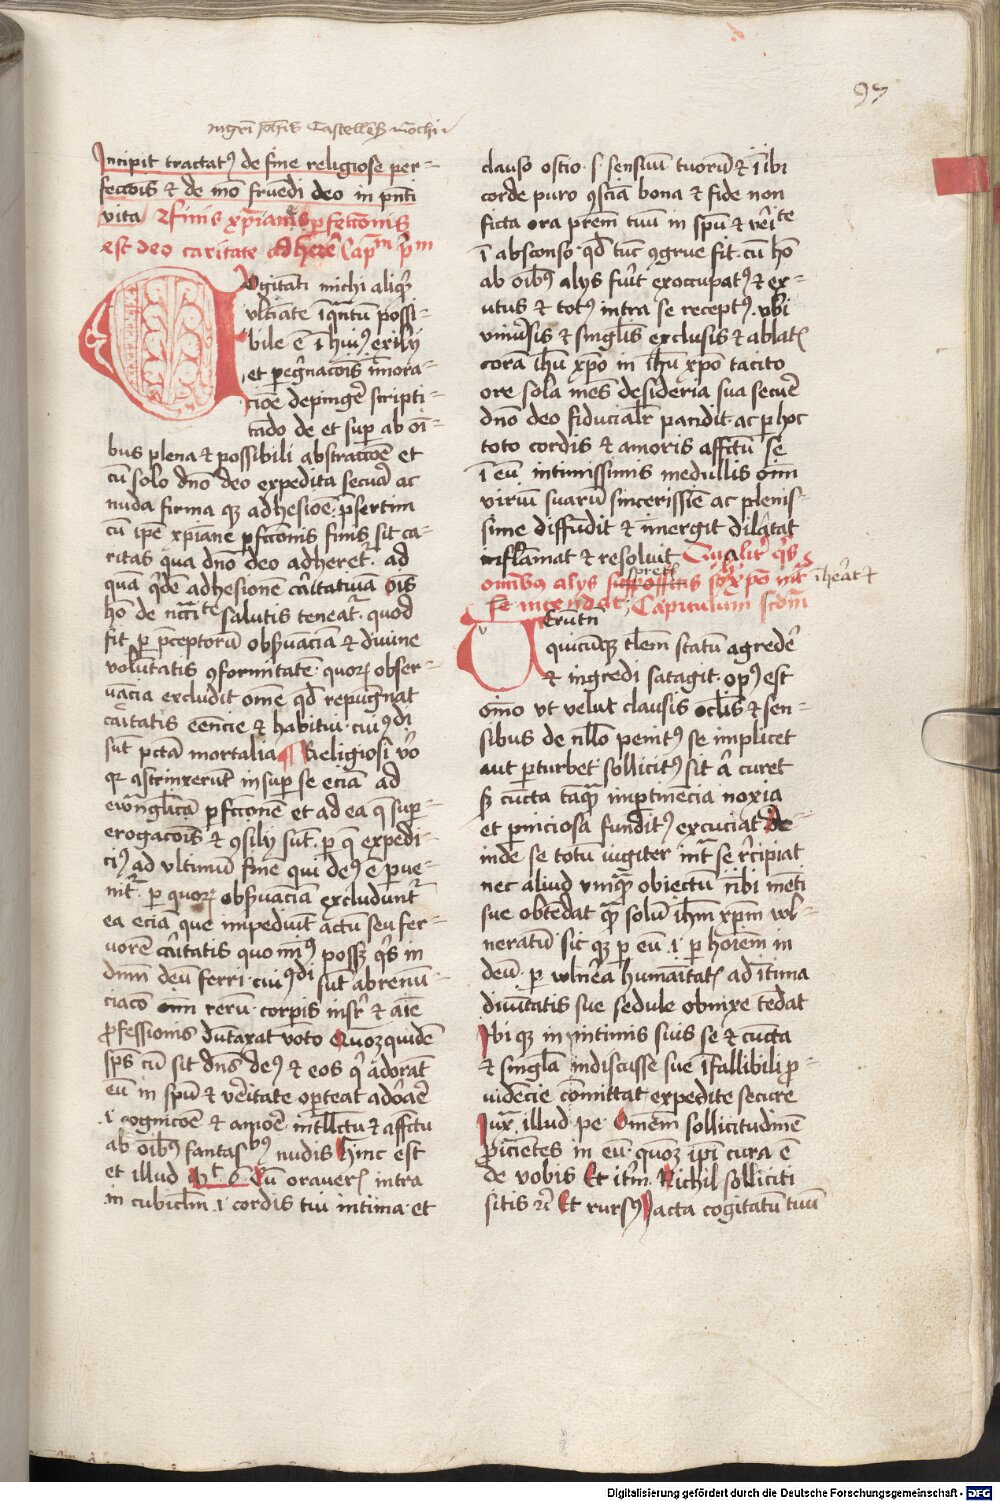 97
mgri Johis Castellens mochi
Incipit tractatꝰ de fine religiose per-
feccōis & de mō fruedi deo in pn̄ti
vita Ꝙ finis xp̄iane ꝑfeccōnis
est deo caritate adherē Capᵐ pᵐ
Cogitāti michi aliqͥd
vltīate īqn̄tū possi-
bile ē ī huiꝰ exily
et ꝑegͥnacōis īmora-
cōe depingē scripti-
tādo de et suꝑ ab oī-
bus plena & possibili abstraccōe et
cū solo dn̄o deo expedita secura ac
nuda firma qꝫ adhesiōe p̄sertim
cū ipē xpiane ꝑfcc̄onis finis sit ca-
ritas qua dn̄o deo adheretᷣ ad
qua qͥdē adhesionē caͥtatiuā oīs
hō de nc̄citᵗᵉ salutis teneatᷣ quod
fit ꝑ p̄ceptorū obẜuāciā & diuine
volūtatis ɔformitate quoꝝ obser-
uācia excludit om̄e qd̄ repugnat
caͥtatis eēncie & habitui cuiꝰdi
sūt pctā mortalia ¶ Religiosi v̄o
qͥ astrinxerūt insuꝑ se eciā ad
ewāgͥlicā ꝑfcc̄ionē et ad ea q̄ suꝑ-
erogacōis & ɔsily sūt ꝑ q̄ expedi-
ciꝰ ad vltimū finē qui deꝰ ē ꝑue-
nitᷣ ꝑ quoꝝ obẜuāciā excludūtᷣ
ea eciā que impediūt actū seu fer-
uorē caͥtatis quo mīꝰ possꝫ qͥs in
dn̄m deū ferri cuiꝰdi sūt abrenū-
ciacō om̄ rerū corpis insͥ & aīe
ꝓfessionis dūtaxat voto Quoꝫ quidē
sp̄s cū sit dn̄s deꝰ & eos qͥ adorāt
eū in spū & veͥtate oꝑteat adorāe
.i. cognicōe & amōe intll̄ctu & affc̄tu
ab oībꝰ fantasᵇꝰ nudis Hinc est
et illud Mᵗ 6 Cū oraueris intra
in cubicl̄m .i. cordis tui intima et
clauso ostio .s. sensuū tuorū & ībi
corde puro ɔscīa bona & fide non
ficta ora prēm tuū in spū & veͥᵗᵉ
ī absconso qd̄ tūc ɔgrue fit cū hō
ab oībꝰ alys fūit exoccupatꝰ & ex-
utus & totꝰ intra se receptꝰ vbi
vniūsis & singlīs exclusis & ablatꝭ
corā ihū xpō in ihū xpō tacito
ore sola mēs desideria sua secure
dn̄o deo fiducialr̄ pandit ac ꝑ hoc
toto cordis & amoris affc̄tū se
ī eū intimissimis medullis om̄
viriū suarū sincerissīe ac plenis-
sime diffūdit & īmergit dilatat
inflāmat & resoluit Qualitͬ qͥs
omībꝰ alys spretꝭ soli xpō intͬ ihērāt
se intendat Capitulum scdm
Cerūtn̄
quicūqꝫ tlēm statū agredeͬ
& ingredi satagit opꝰ est
om̄o vt velut clausis oclis & sen-
sibus de nll̄o penitꝰ se implicet
aut ꝑturbet sollicitꝰ sit ā curet
ẜ cūcta tāqͣ imꝑtinēcia noxia
et ꝑniciosa fundītꝰ excuciat de
inde se totū iugiter intͣ se rͤcipiat
nec aliud vmqͣ obiectū ibi mēti
sue obtēdat qͣ solū ihm xp̄m vl-
neratū sic qꝫ ꝑ eū .i. ꝑ hoīem in
deū ꝑ vulnēa humāitatꝭ ad ītima
diuītatis sue sedule obnixe tēdat
Ibi qꝫ in intimis suis se & cūcta
& singla indiscusse sue īfallibili ꝓ-
uidēcie cōmittat expedite secure
Iuxͣ illud pe Omēm sollicitudinē
ꝓicientes in eū quoꝫ ipi cura ē
de vobis Et itͬm Nichil solliciti
sitis rc̄ Et rursꝰ Jacta cogitatū tuū
Digitalisierung gefördert durch die Deutsche Forschungsgemeinschaft - DFG